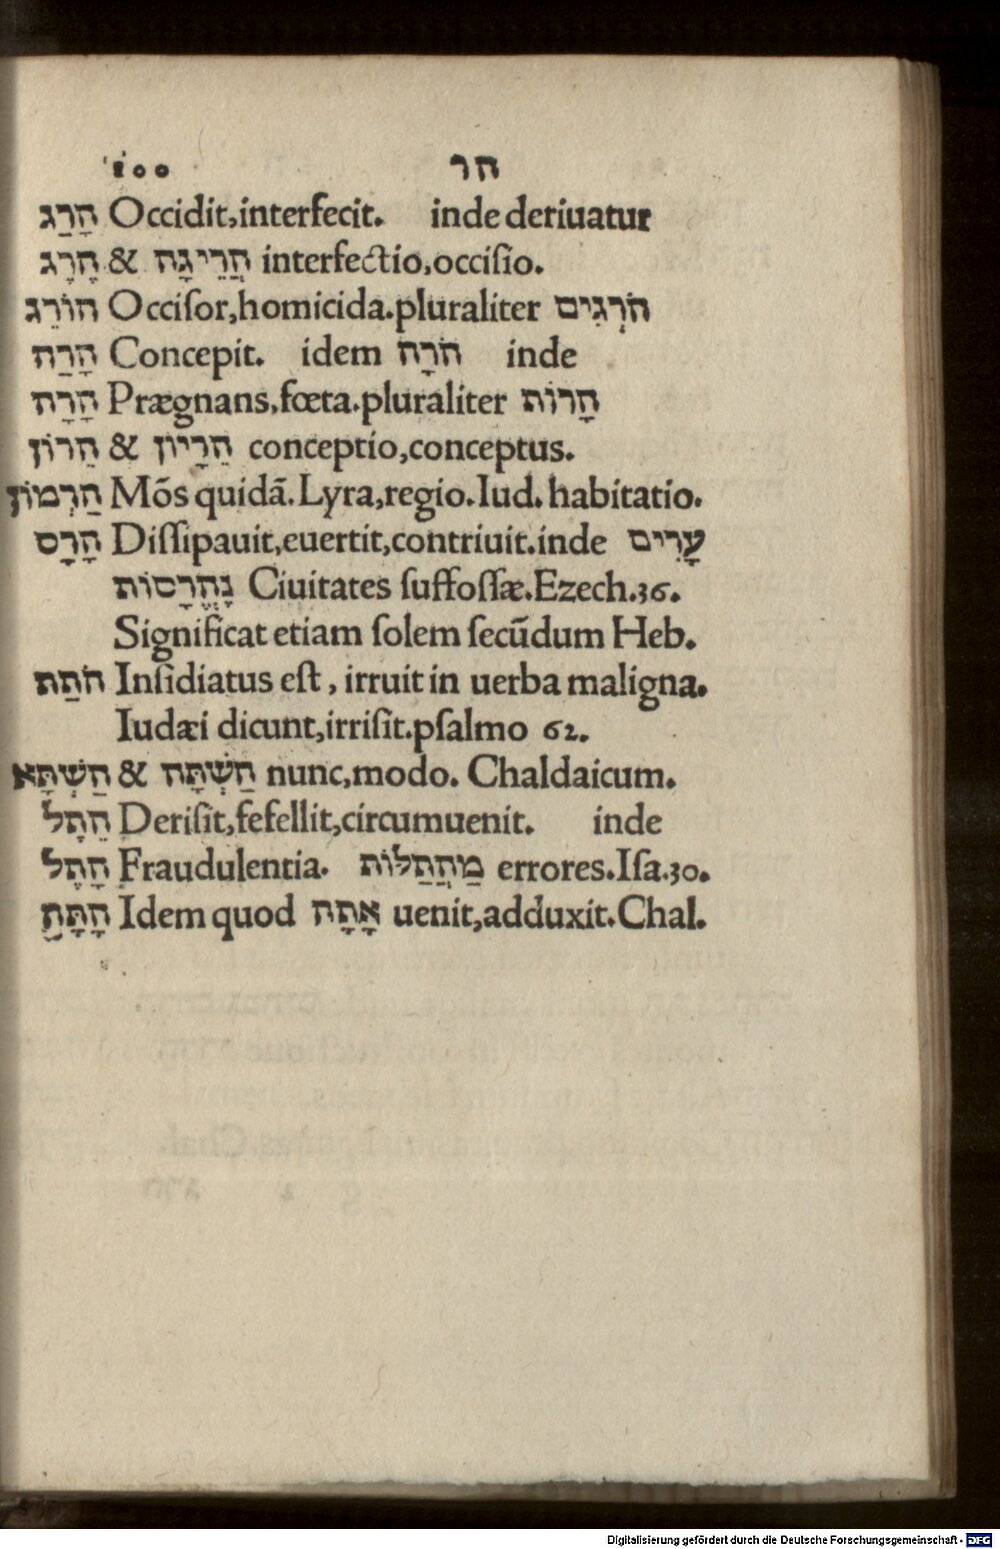 100 הר
הָרַג Occidit,interfecit. inde deriuatur
הֶרֶג & הֲרֵיגָה interfectio,occisio.
הוֹרֵג Occisor,homicida.pluraliter הֹרְגִים
הָרַה Concepit. idem הֹרָה inde
הָרָה Prægnans,fœta.pluraliter הָרוֹת
הֵרוֹן & הֵרָיוֹן conceptio,conceptus.
הַרְמוֹן Mõs quidã.Lyra,regio.Iud.habitatio.
הָרָס Dissipauit,euertit,contriuit.inde עָרִים
נָהֱרָסוֹת Ciuitates suffossæ.Ezech.36.
Significat etiam solem secũdum Heb.
הֹתַת Insidiatus est, irruit in uerba maligna.
Iudæi dicunt,irrisit.psalmo 62.
הַשְׁתָּא & הַשְׁתָּה nunc,modo. Chaldaicum.
הֵתֶל Derisit,fefellit,circumuenit. inde
הָתֶל Fraudulentia. מַהֲתַלּוֹת errores.Isa.30.
הָתָּה Idem quod אָתָה uenit,adduxit.Chal.
Digitalisierung gefördert durch die Deutsche Forschungsgemeinschaft - DFG